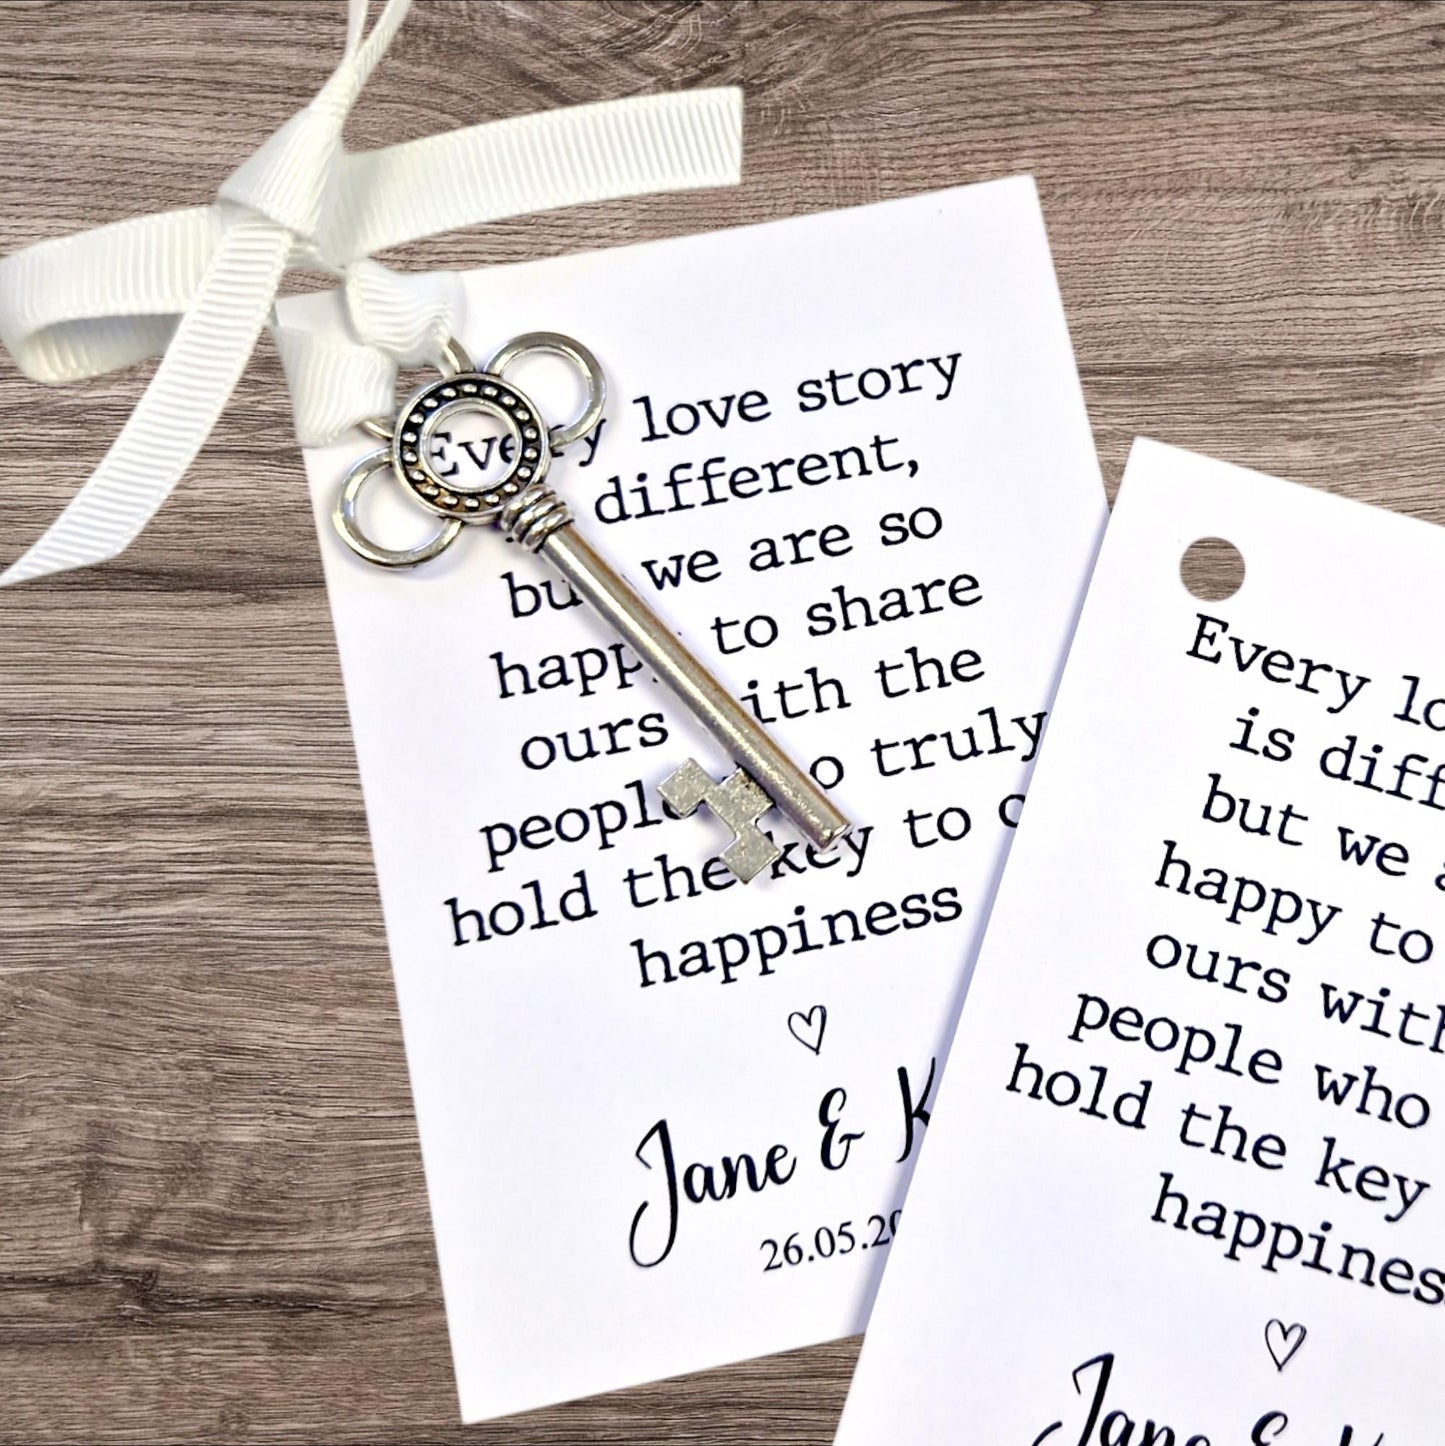 Every love story
different,
but we are so
happy to share
ours with the
people who truly
hold the key to
happiness
Jane & K
26.05.20
Every lo
is diff
but we a
happy to
ours with
people who
hold the key
happiness
Jane &